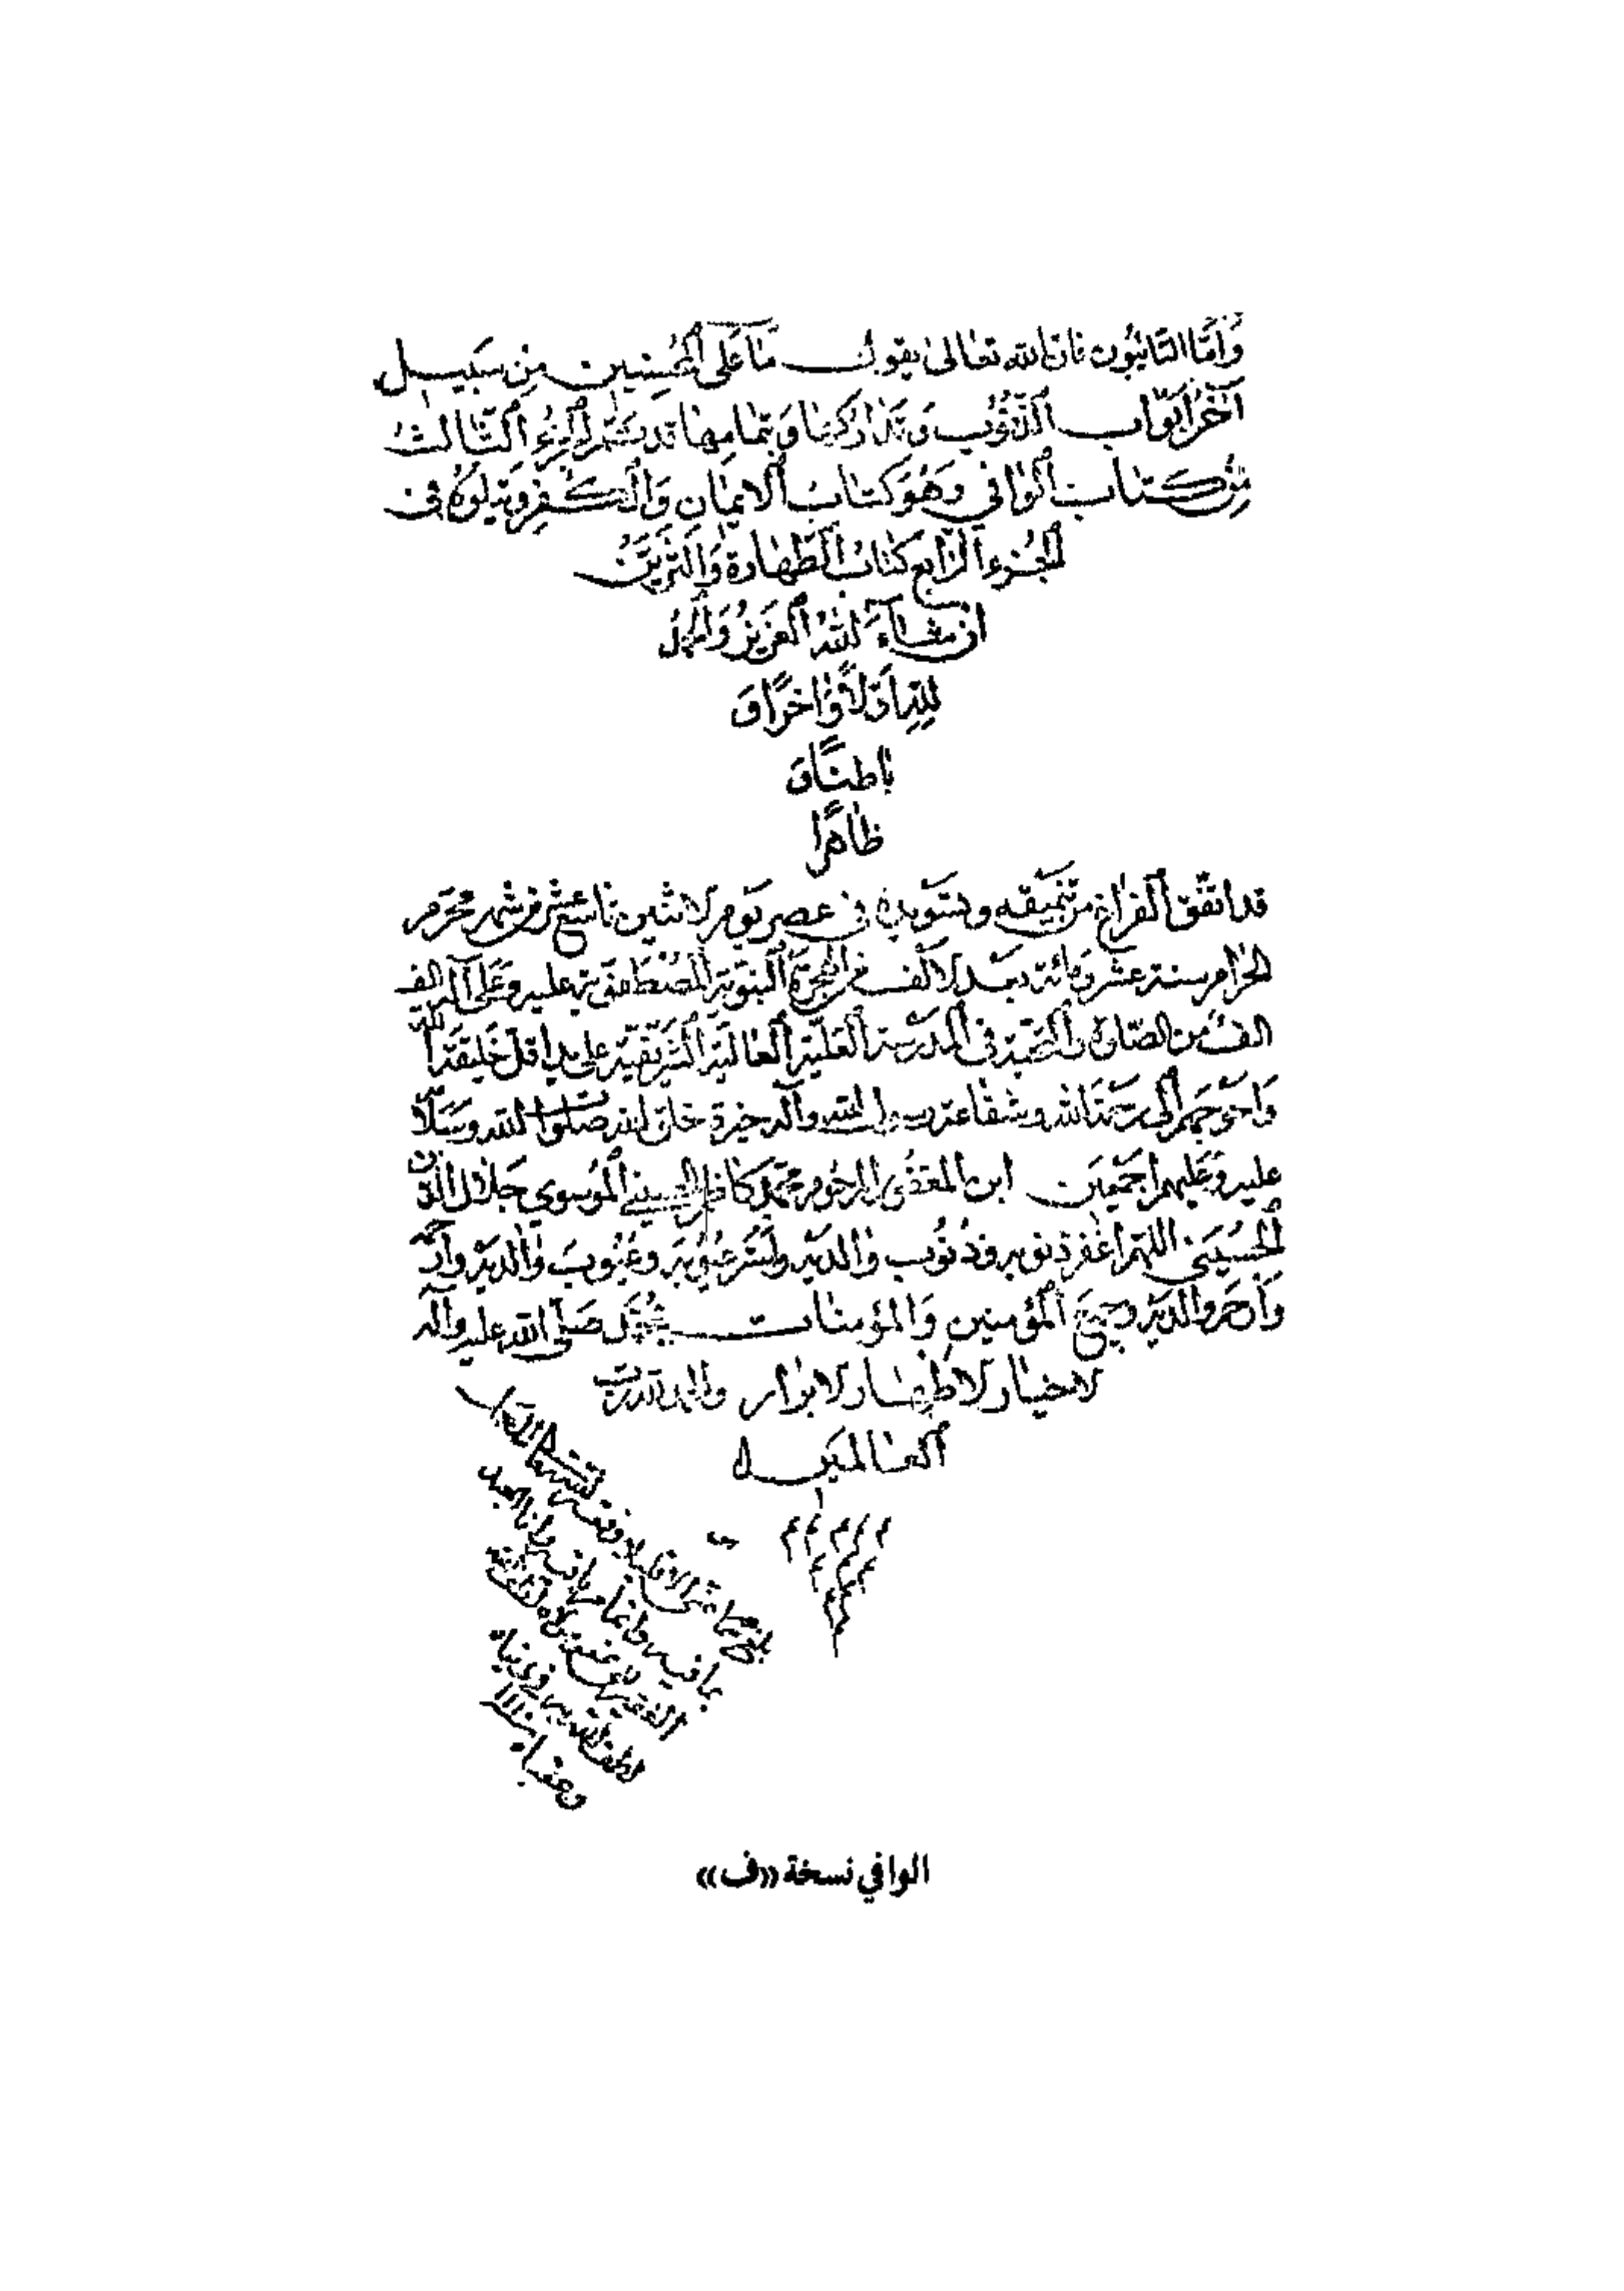 وَأمَّا التَائبُون فان الله تعالى يقول مَا عَلَى المُحسِنين مِن سَبيل
آخرُ أبوَاب الذنُوب وَتداركها وَبتمامها قد تمّ الجزءُ الثالث
مِن كتاب الوافي وهُوَ كتابُ الايمان وَالكفر ويتلوهُ في
الجُزء الرّابع كتابُ الطّهارة وَالتزيّن
ان شاءَ الله العزيزُ وَالحمدُ
لِلّهِ اوّلاً وَاخراً وَ
باطناً وَ
ظاهراً
قد اتفق الفراغ من تنميقه وتسويده في عصر يَوم الاثنين تاسع عشر من شهر محرّم
الحرام سنة عشر ومائة بعد الالف من الهجرة النبويّة المصطفويّة عليه وعَلى آله الف
الف من الصّلوة والتحيّة في المدرسة العليّة العالية على يد اقل خليقة الله
وَاحوجهم الى رحمة الله وشفاعة رسول الله وآله خيرة خلق الله صلوات الله وسَلامه
عليه وَعليهم اجمَعين ابن المغفُور المرحُوم محمّد كاظم الحسيني المُوسوي جَلال الدّين
الحُسَيني اللهمّ اغفر ذنوبه وذنُوب وَالديه وَاستر عيُوبه وعُيُوبَ وَالديه وارحمه
وَارحم والديه وجميعَ المؤمنين وَالمؤمنات بمُحمّد صَلّى الله عليه وآله
الاخيار الاطهار الابرار والحمد لله ربّ
العالمين
الوافي نسخة «ف»